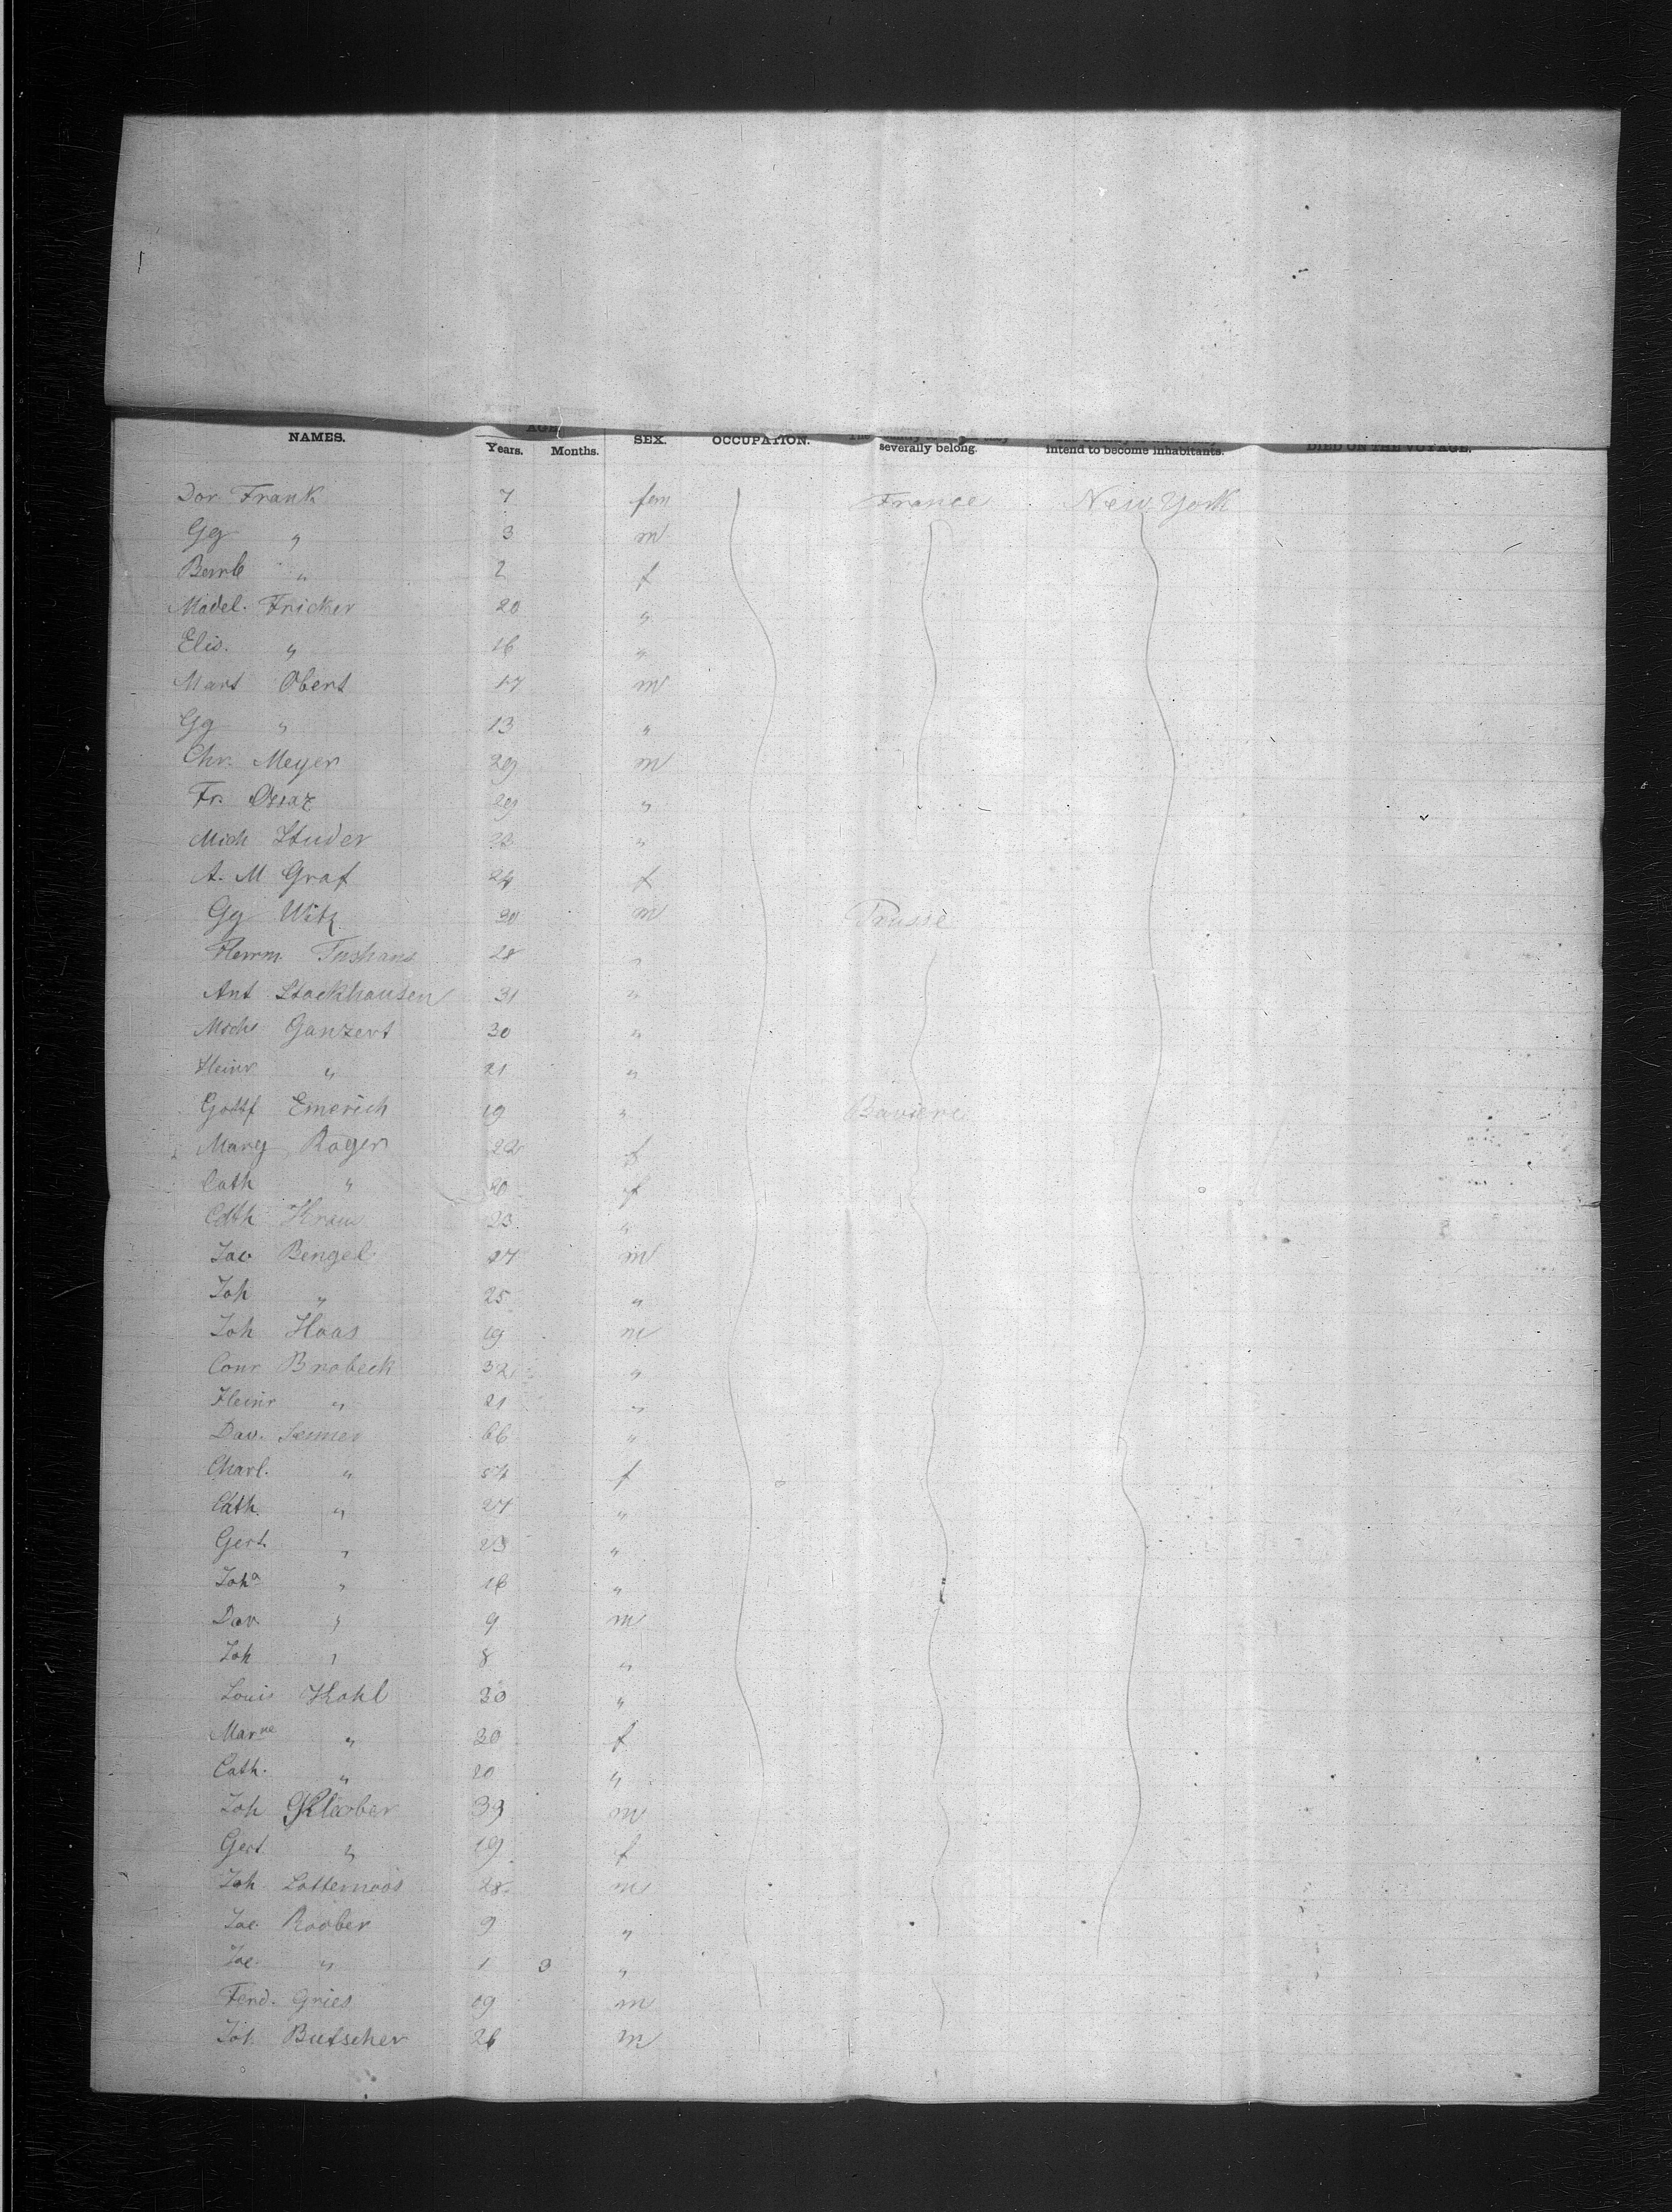 NAMES. AGE Years. Months. SEX. OCCUPATION. severally belong. intend to become inhabitants. DIED ON THE VOYAGE.
Dor Frank 7 fem France New York
Gg " 3 m
Barb " 2 f
Madel. Fricker 20 "
Elis. " 16 "
Mart Obert 17 m
Gg " 13 "
Chr. Meyer 29 m
Fr. 29 "
Mich Studer 23 "
A. M Graf 24 f
Gg Witz 30 m Prusse
Herrm. Tushans 28 "
Ant Stackhausen 31 "
Mich Ganzert 30 "
Heinr " 21 "
Gottf Emerich 19 " Baviere
Marg Roger 22 f
Cath " 20 f
Cath 23 "
Jac Bengel 27 m
Joh " 25 "
Joh Haas 19 m
Conr Brobeck 32 "
Heinr " 21 "
Dav. 66 "
Charl. " 54 f
Cath. " 27 "
Gert. " 23 "
Joha " 16 "
Dav. " 9 m
Joh " 8 "
Louis Kohl 30 "
Marne " 30 f
Cath. " 20 "
Joh 39 m
Gert. " 19 f
Joh Lottemoos 28 m
Jac. Roober 9 "
Jac. " 1 3 "
Ferd. Gries 19 m
Jos. Butscher 26 m